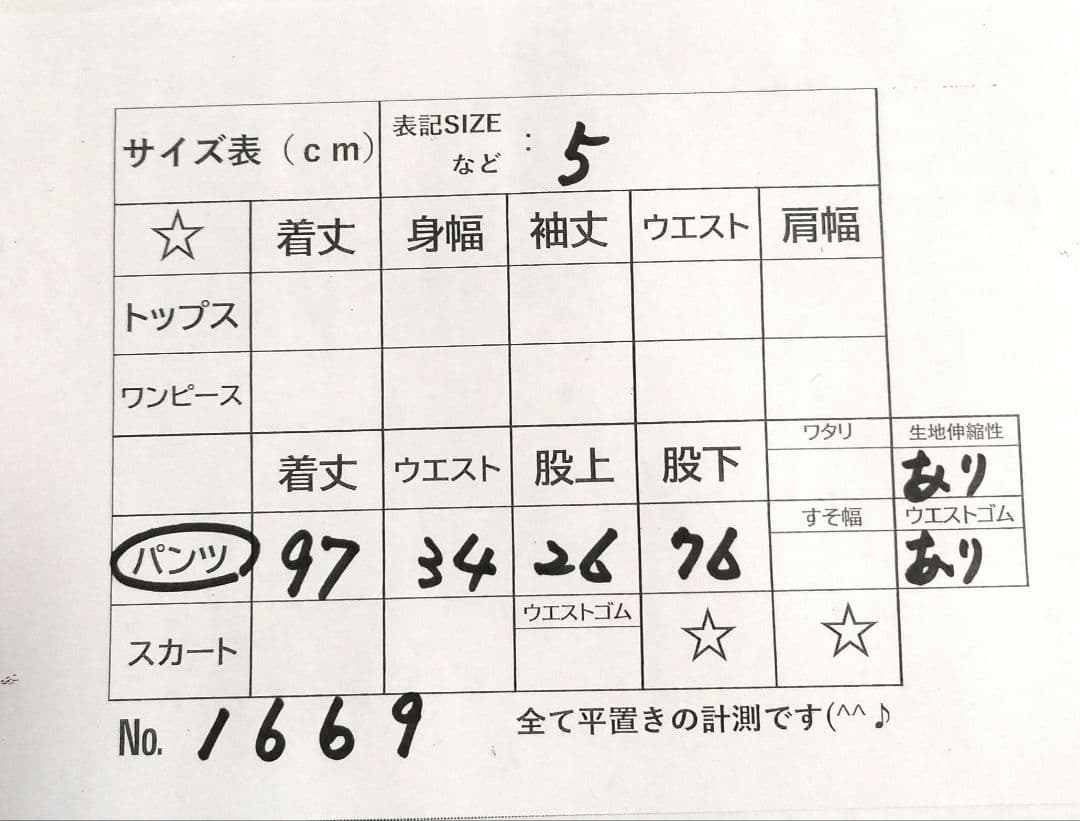 サイズ表（ｃｍ） 表記SIZE など : 5
☆ 着丈 身幅 袖丈 ウエスト 肩幅
トップス
ワンピース
着丈 ウエスト 股上 股下 ワタリ 生地伸縮性
あり
すそ幅 ウエストゴム
パンツ 97 34 26 76 あり
ウエストゴム
スカート ☆ ☆
No. 1669 全て平置きの計測です(^^♪